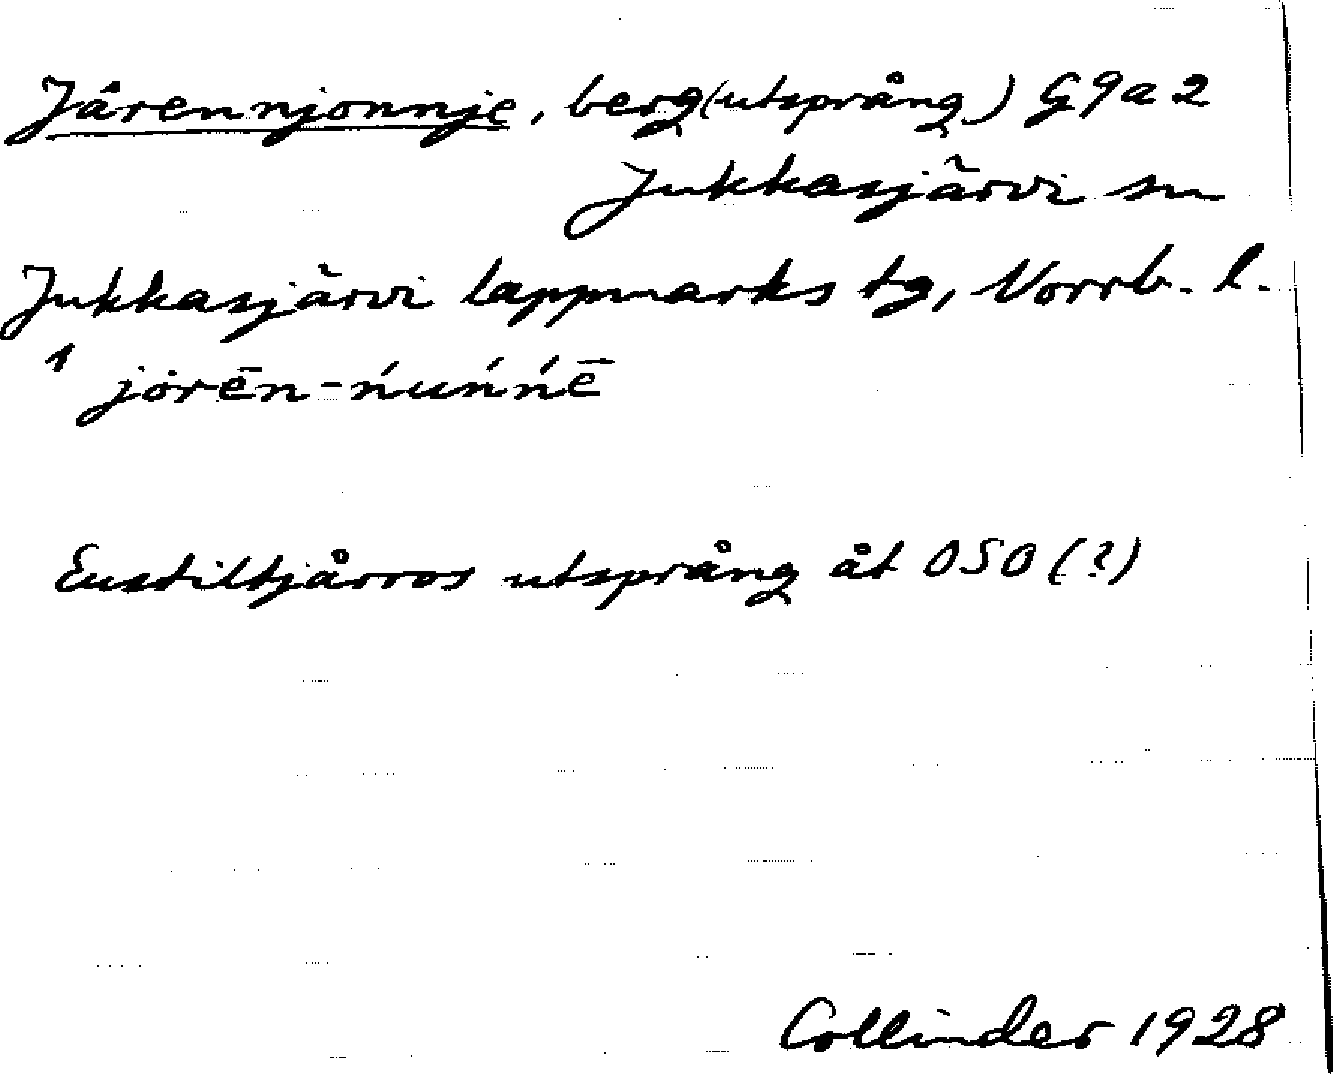 Jårennjonnje, berg(utsprång) G9a2
Jukkasjärvi sn
Jukkasjärvi lappmarks tg, Norrb. l.
1 jȯrēn-ńuńńē
Eustiltjårros utsprång åt OSO (?)
Collinder 1928